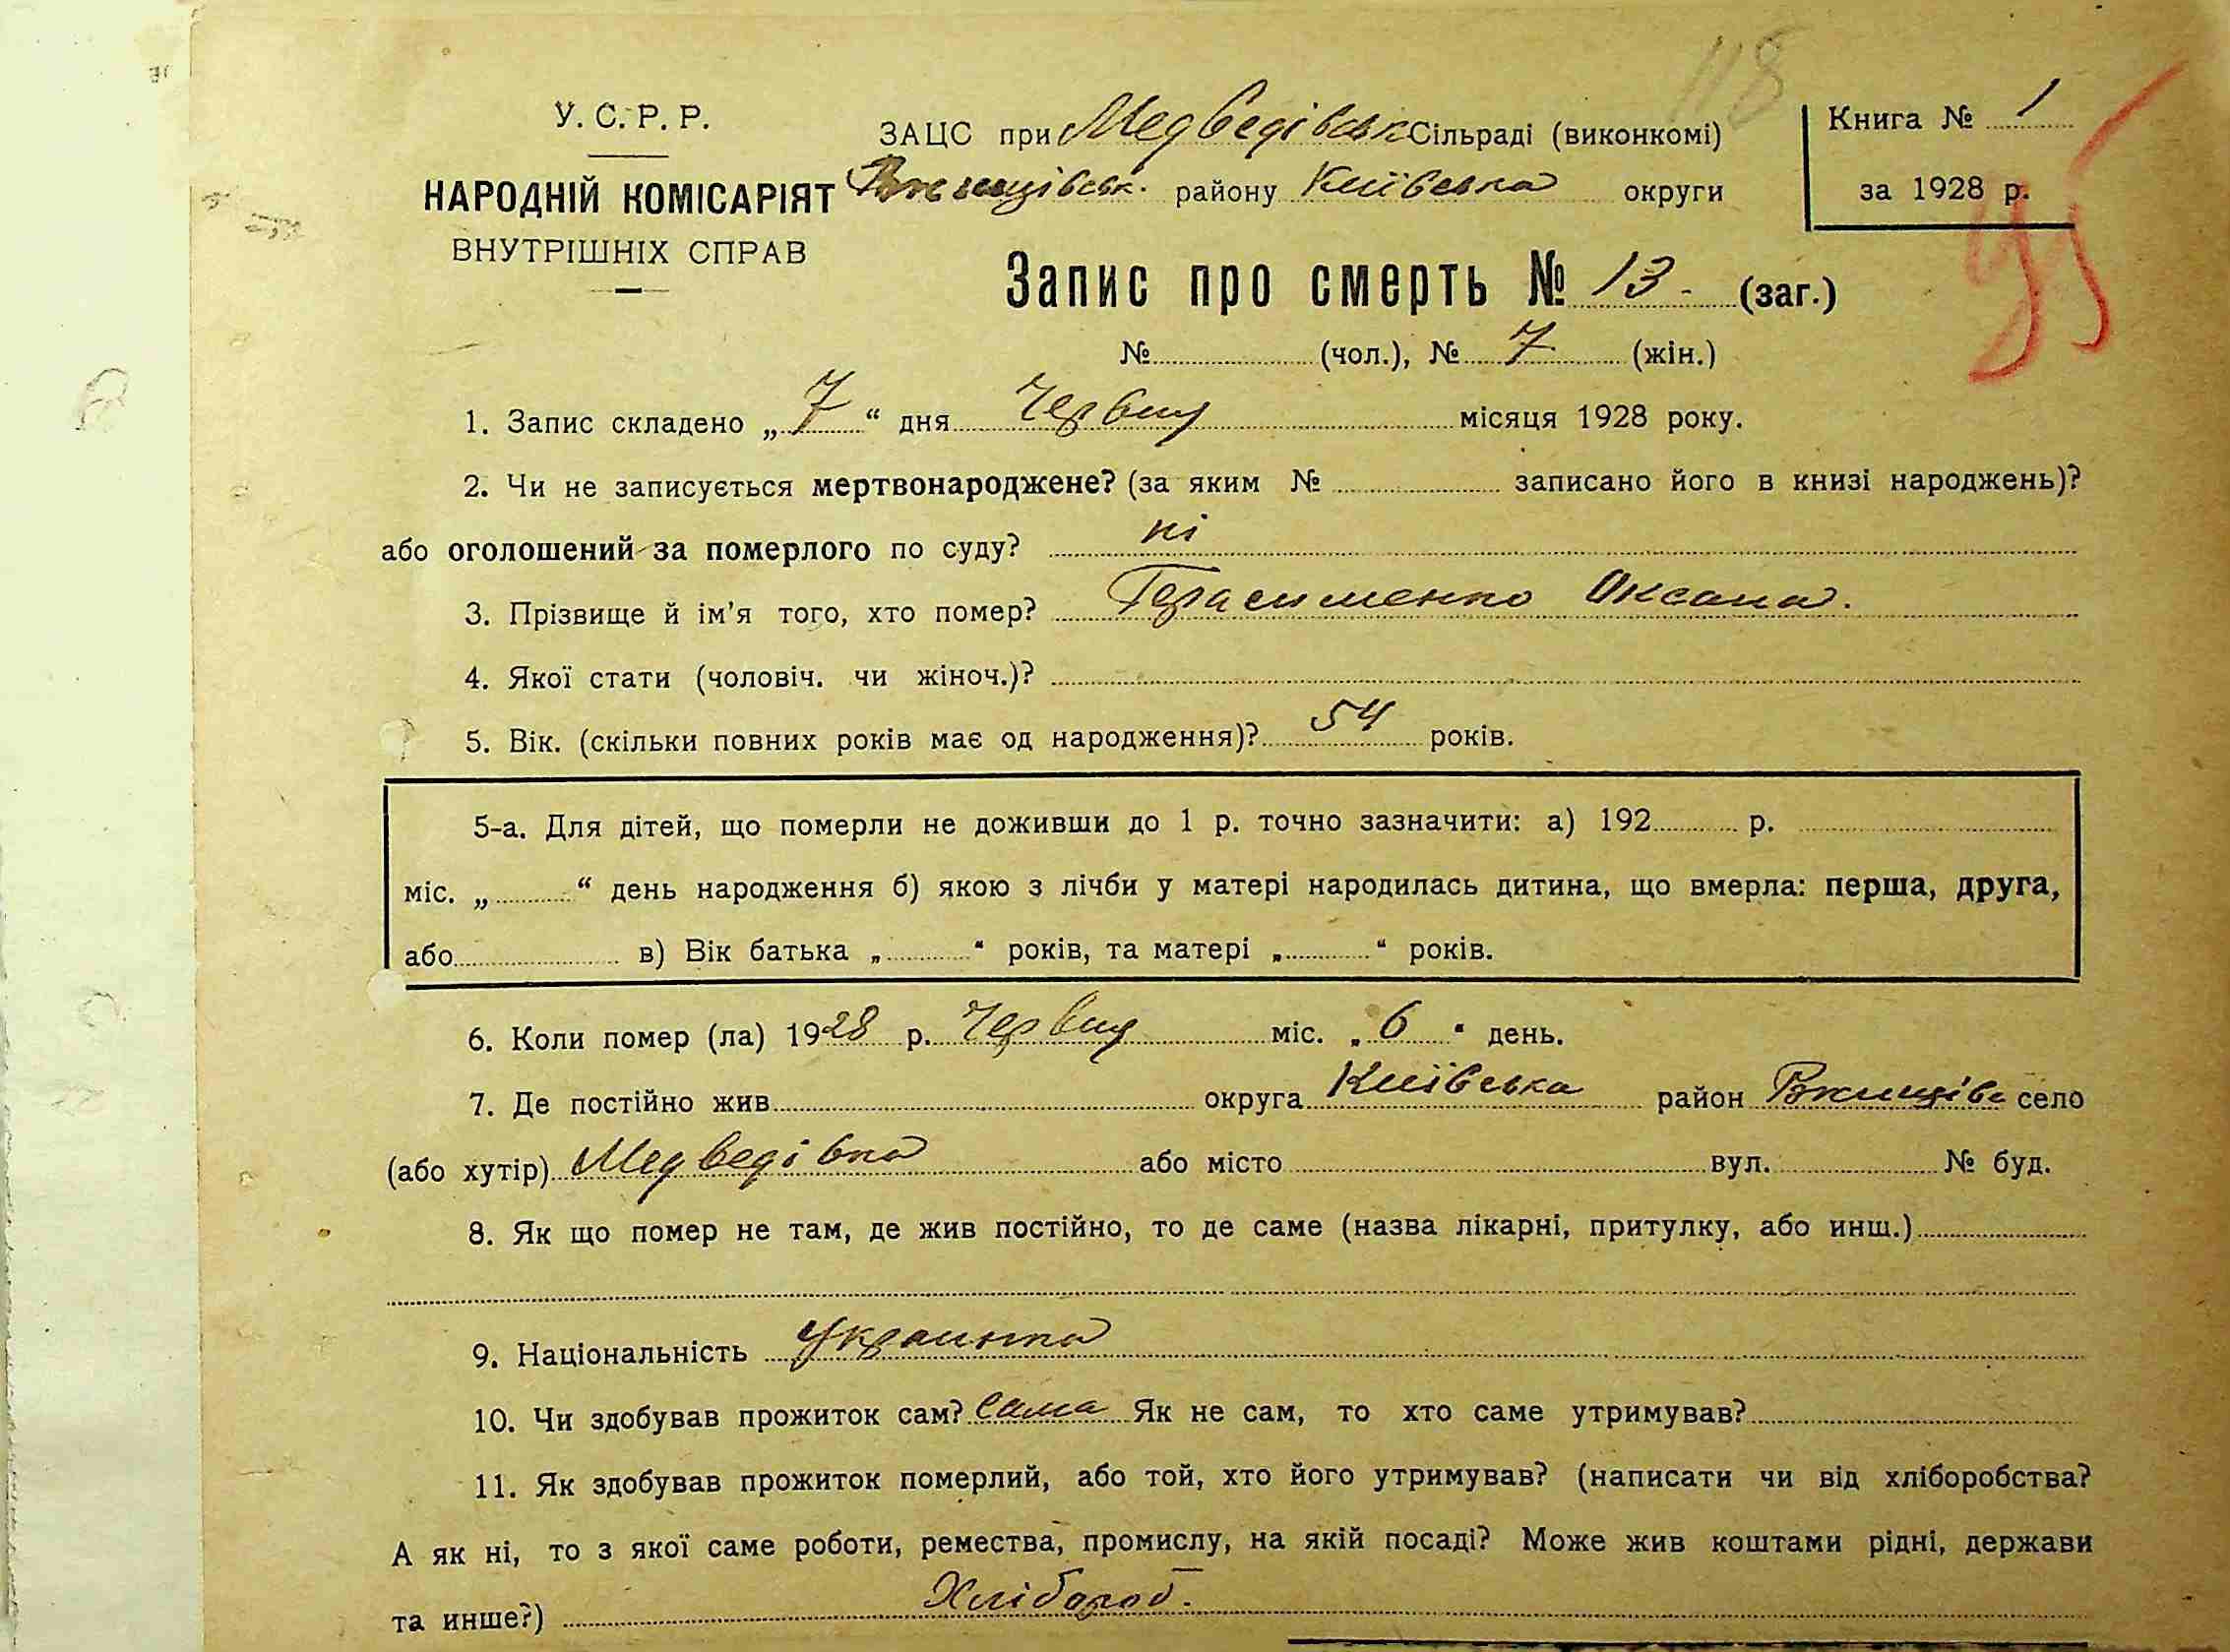 118
У. С. Р. Р.
ЗАЦС при Медведівськ Сільраді (виконкомі)
Книга № 1
НАРОДНІЙ КОМІСАРІЯТ
Ржищівськ. району Київська округи
за 1928 р.
95
ВНУТРІШНІХ СПРАВ
Запис про смерть № 13 - (заг.)
№ (чол.), № 7 (жін.)
1. Запис складено „ 7 “ дня Червня місяця 1928 року.
2. Чи не записується мертвонароджене? (за яким № записано його в книзі народжень)?
або оголошений за померлого по суду? ні
3. Прізвище й ім'я того, хто помер? Герасименко Оксана.
4. Якої стати (чоловіч. чи жіноч.)?
5. Вік. (скільки повних років має од народження)? 54 років.
5-а. Для дітей, що померли не доживши до 1 р. точно зазначити: а) 192 р.
міс. „ “ день народження б) якою з лічби у матері народилась дитина, що вмерла: перша, друга,
або в) Вік батька „ “ років, та матері „ “ років.
6. Коли помер (ла) 1928 р. Червня міс. „ 6 “ день.
7. Де постійно жив округа Київська район Ржищівс село
(або хутір) Медведівка або місто вул. № буд.
8. Як що помер не там, де жив постійно, то де саме (назва лікарні, притулку, або инш.)
9. Національність Украинка
10. Чи здобував прожиток сам? Сама Як не сам, то хто саме утримував?
11. Як здобував прожиток померлий, або той, хто його утримував? (написати чи від хліборобства?
А як ні, то з якої саме роботи, ремества, промислу, на якій посаді? Може жив коштами рідні, держави
та инше?) Хлібороб.